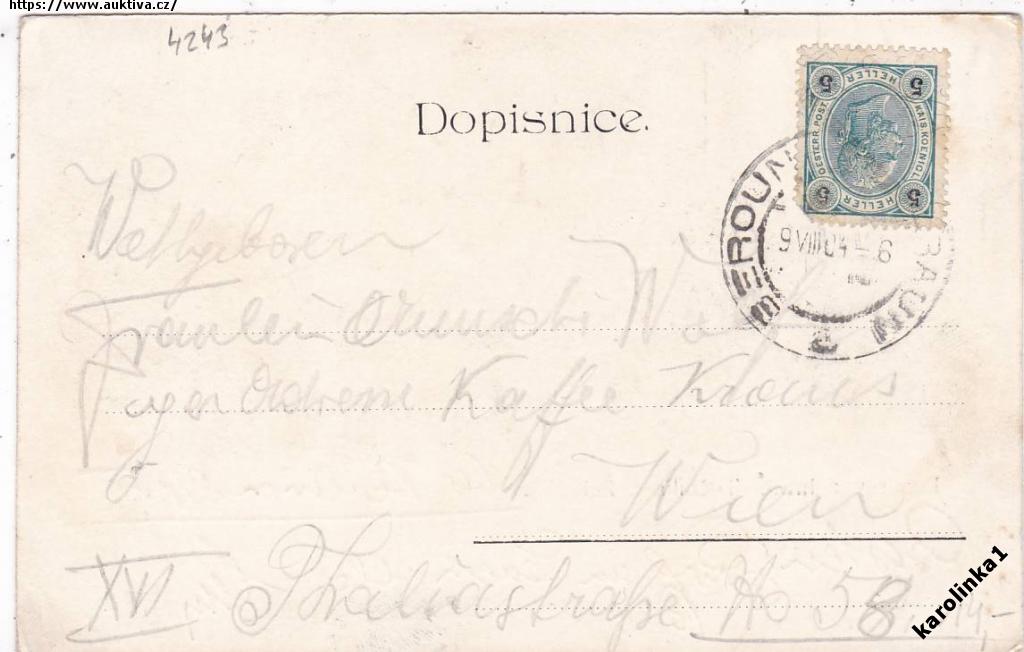 https://www.auktiva.cz/
4243
Dopisnice.
5 HELLER 5
OESTERR. POST KAIS. KOENIGL.
5 HELLER 5
BEROUN BERAUN
9 VIII 04 - 6
Wohlgeboren
Fräulein
Adresse Kaffee Kraus
Wien
XVI. Thaliastraße No 58
karolinka1